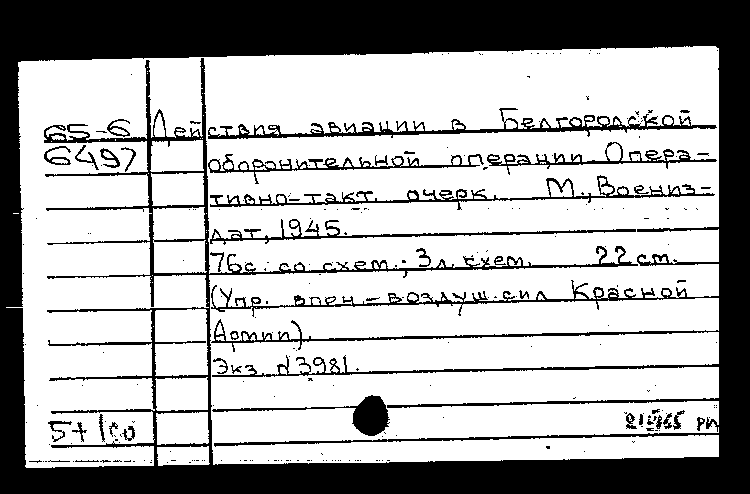 65-6 Действия авиации в Белгородской
6497 оборонительной операции. Опера-
тивно-такт. очерк. М., Воениз-
дат, 1945.
76с. со схем.; 3л. схем. 22 ст.
(Упр. воен-воздуш. сил Красной
Армии).
Экз. №3981.
5+1со